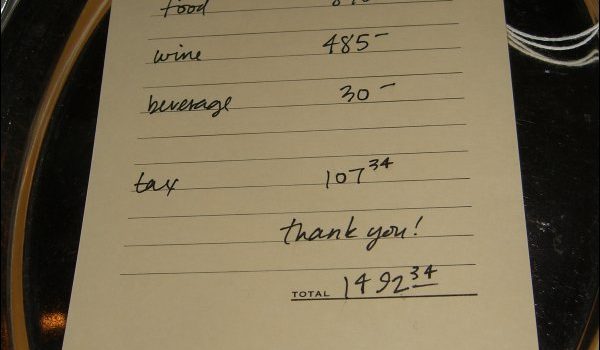 food
wine 485-
beverage 30-
tax 107 34
thank you!
TOTAL 1492 34